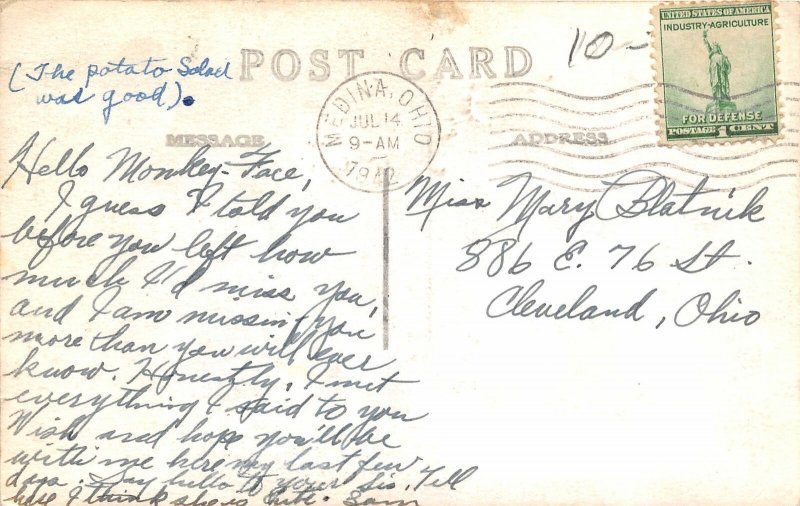 (The potato Salad
was good).
POST CARD
10-
UNITED STATES OF AMERICA
INDUSTRY-AGRICULTURE
FOR DEFENSE
POSTAGE 1 CENT
MEDINA, OHIO
JUL 14
9-AM
1942
MESSAGE
ADDRESS
Hello Monkey-Face,
I guess I told you
before you left how
much I'd miss you,
and I am missing you
more than you will ever
know. Honestly, I met
everything I said to you
Wish and hope you'll be
with me here my last few
days. Say hello to your sis. Tell
her I think she is cute. Sam
Miss Mary Blatnik
886 E. 76 St.
Cleveland, Ohio